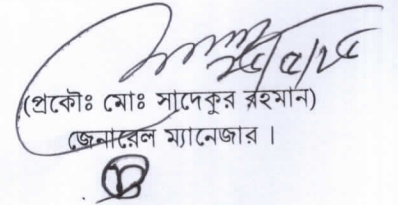 (প্রকৌঃ মোঃ সাদেকুর রহমান)
জেনারেল ম্যানেজার ।